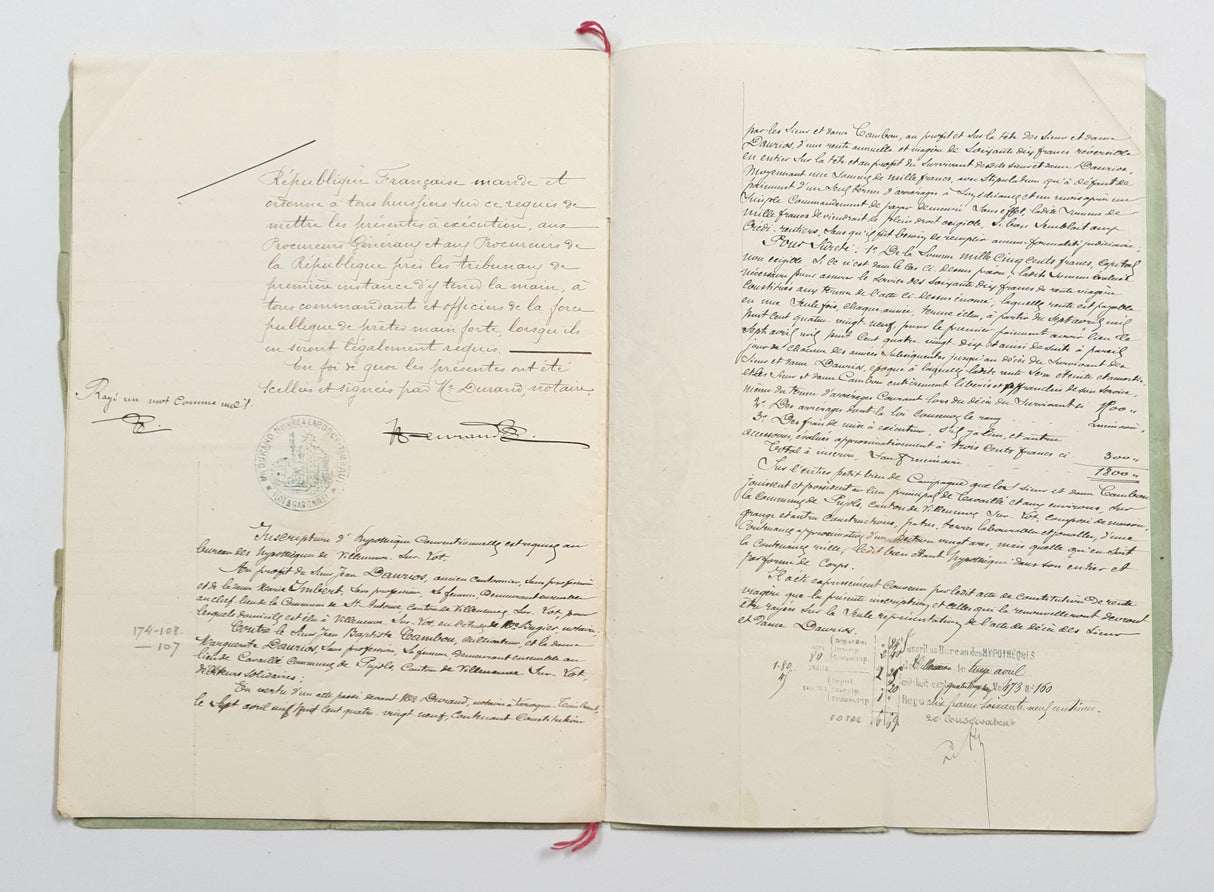 République Française mande et
ordonne à tous huissiers sur ce requis de
mettre les présentes à exécution, aux
Procureurs Généraux et aux Procureurs de
la République près les tribunaux de
première instance d'y tenir la main, à
tous commandants et officiers de la force
publique de prêter main forte, lorsqu'ils
en seront légalement requis.
En foi de quoi les présentes ont été
scellées et signées par Me Durand, notaire.
Rayé un mot comme nul.
Me DURAND NOTAIRE À LAROQUE
LOT & GARONNE
Inscription d'hypothèque Conventionnelle est requise au
bureau des hypothèques de Villeneuve-Sur-Lot.
Au profit de Sieur Jean Daurios, ancien cantonnier, Sans profession
et de dame Marie Imbert, Sans profession, Sa femme demeurant ensemble
au chef-lieu de la Commune de St Antoine Canton de Villeneuve Sur Lot, pour
lesquels domicile est élu à Villeneuve-Sur-Lot, en l'étude de Me Bugier, notaire.
174-108
— 107
Contre le Sieur Jean Baptiste Cambou, cultivateur, et la dame
Marguerite Daurios, Sans profession, Sa femme demeurant ensemble au
lieu de Cavaillé Commune de Pujols Canton de Villeneuve Sur Lot,
débiteurs solidaires;
En vertu d'un acte passé devant Me Durand, notaire à Laroque
le Sept avril mil huit cent quatre-vingt-neuf, Contenant Constitution
par les Sieur et dame Cambou, au profit et Sur la tête des Sieur et dame
Daurios, d'une rente annuelle et viagère de Soixante dix francs reversible
en entier Sur la tête et au profit du Survivant desdits Sieur et dame Daurios,
Moyennant une Somme de mille francs, avec Stipulation qu'à défaut de
paiement d'un Seul terme d'arrérages à Son échéance et un mois après un
Simple Commandement de payer demeuré Sans effet, ladite Somme de
mille francs deviendrait de plein droit exigible, Si bon Semblait aux
Crédi-rentiers, Sans qu'il fut besoin de remplir aucune formalité judiciaire;
Pour Sûreté: 1° De la Somme mille Cinq Cents francs, Capital
non exigible Si ce n'est dans le cas ci-dessus prévu, ladite Somme évaluée
nécessaire pour assurer le Service des Soixante dix francs de rente viagère
Constituée aux termes de l'acte ci-dessus énoncé, laquelle rente est payable
en une Seule fois, chaque année, terme échu, à partir du Sept avril mil
huit cent quatre-vingt neuf, pour le premier paiement avoir lieu le
Sept avril mil huit cent quatre vingt dix et ainsi de Suite à pareil
jour de chacune des années Subséquentes jusqu'au décès du Survivant des
Sieur et dame Daurios, époque à laquelle ladite rente Sera éteinte et amortie,
et les Sieur et dame Cambou entièrement libérés et affranchis de Son Service,
même du terme d'arrérages Courant lors du décès du Survivant ci 1500 "
2° Des arrérages dont la loi conserve le rang mémoire;
3° Des frais de mise à exécution, S'il y a lieu, et autres
accessoires, évalués approximativement à trois Cents francs ci 300 "
Total à inscrire, Sauf mémoire 1800 "
Sur l'entier petit bien de Campagne que les Sieur et dame Cambou
jouissent et possèdent au lieu principal de Cavaillé et aux environs, Sur
la Commune de Pujols, Canton de Villeneuve-Sur-Lot, composé de maison,
grange et autres constructions, patus, terres labourables et joualles, d'une
Contenance approximative d'un hectare vingt ares, mais quelle qu'en Soit
la Contenance réelle, ledit bien étant hypothéqué dans Son entier et
par forme de Corps.
Il a été expressément Convenu par ledit acte de Constitution de rente
viagère que la présente inscription et celles qui la renouvelleront devront
être rayées Sur la Seule représentation de l'acte de décès des Sieur
et dame Daurios.
Inscrit au Bureau des HYPOTHÈQUES
de Villeneuve le treize avril
mil-huit cent quatre vingt neuf Vol 473 No 160
Reçu six francs Soixante neuf centimes.
Le Conservateur
1.80
45
TOTAL 6 69